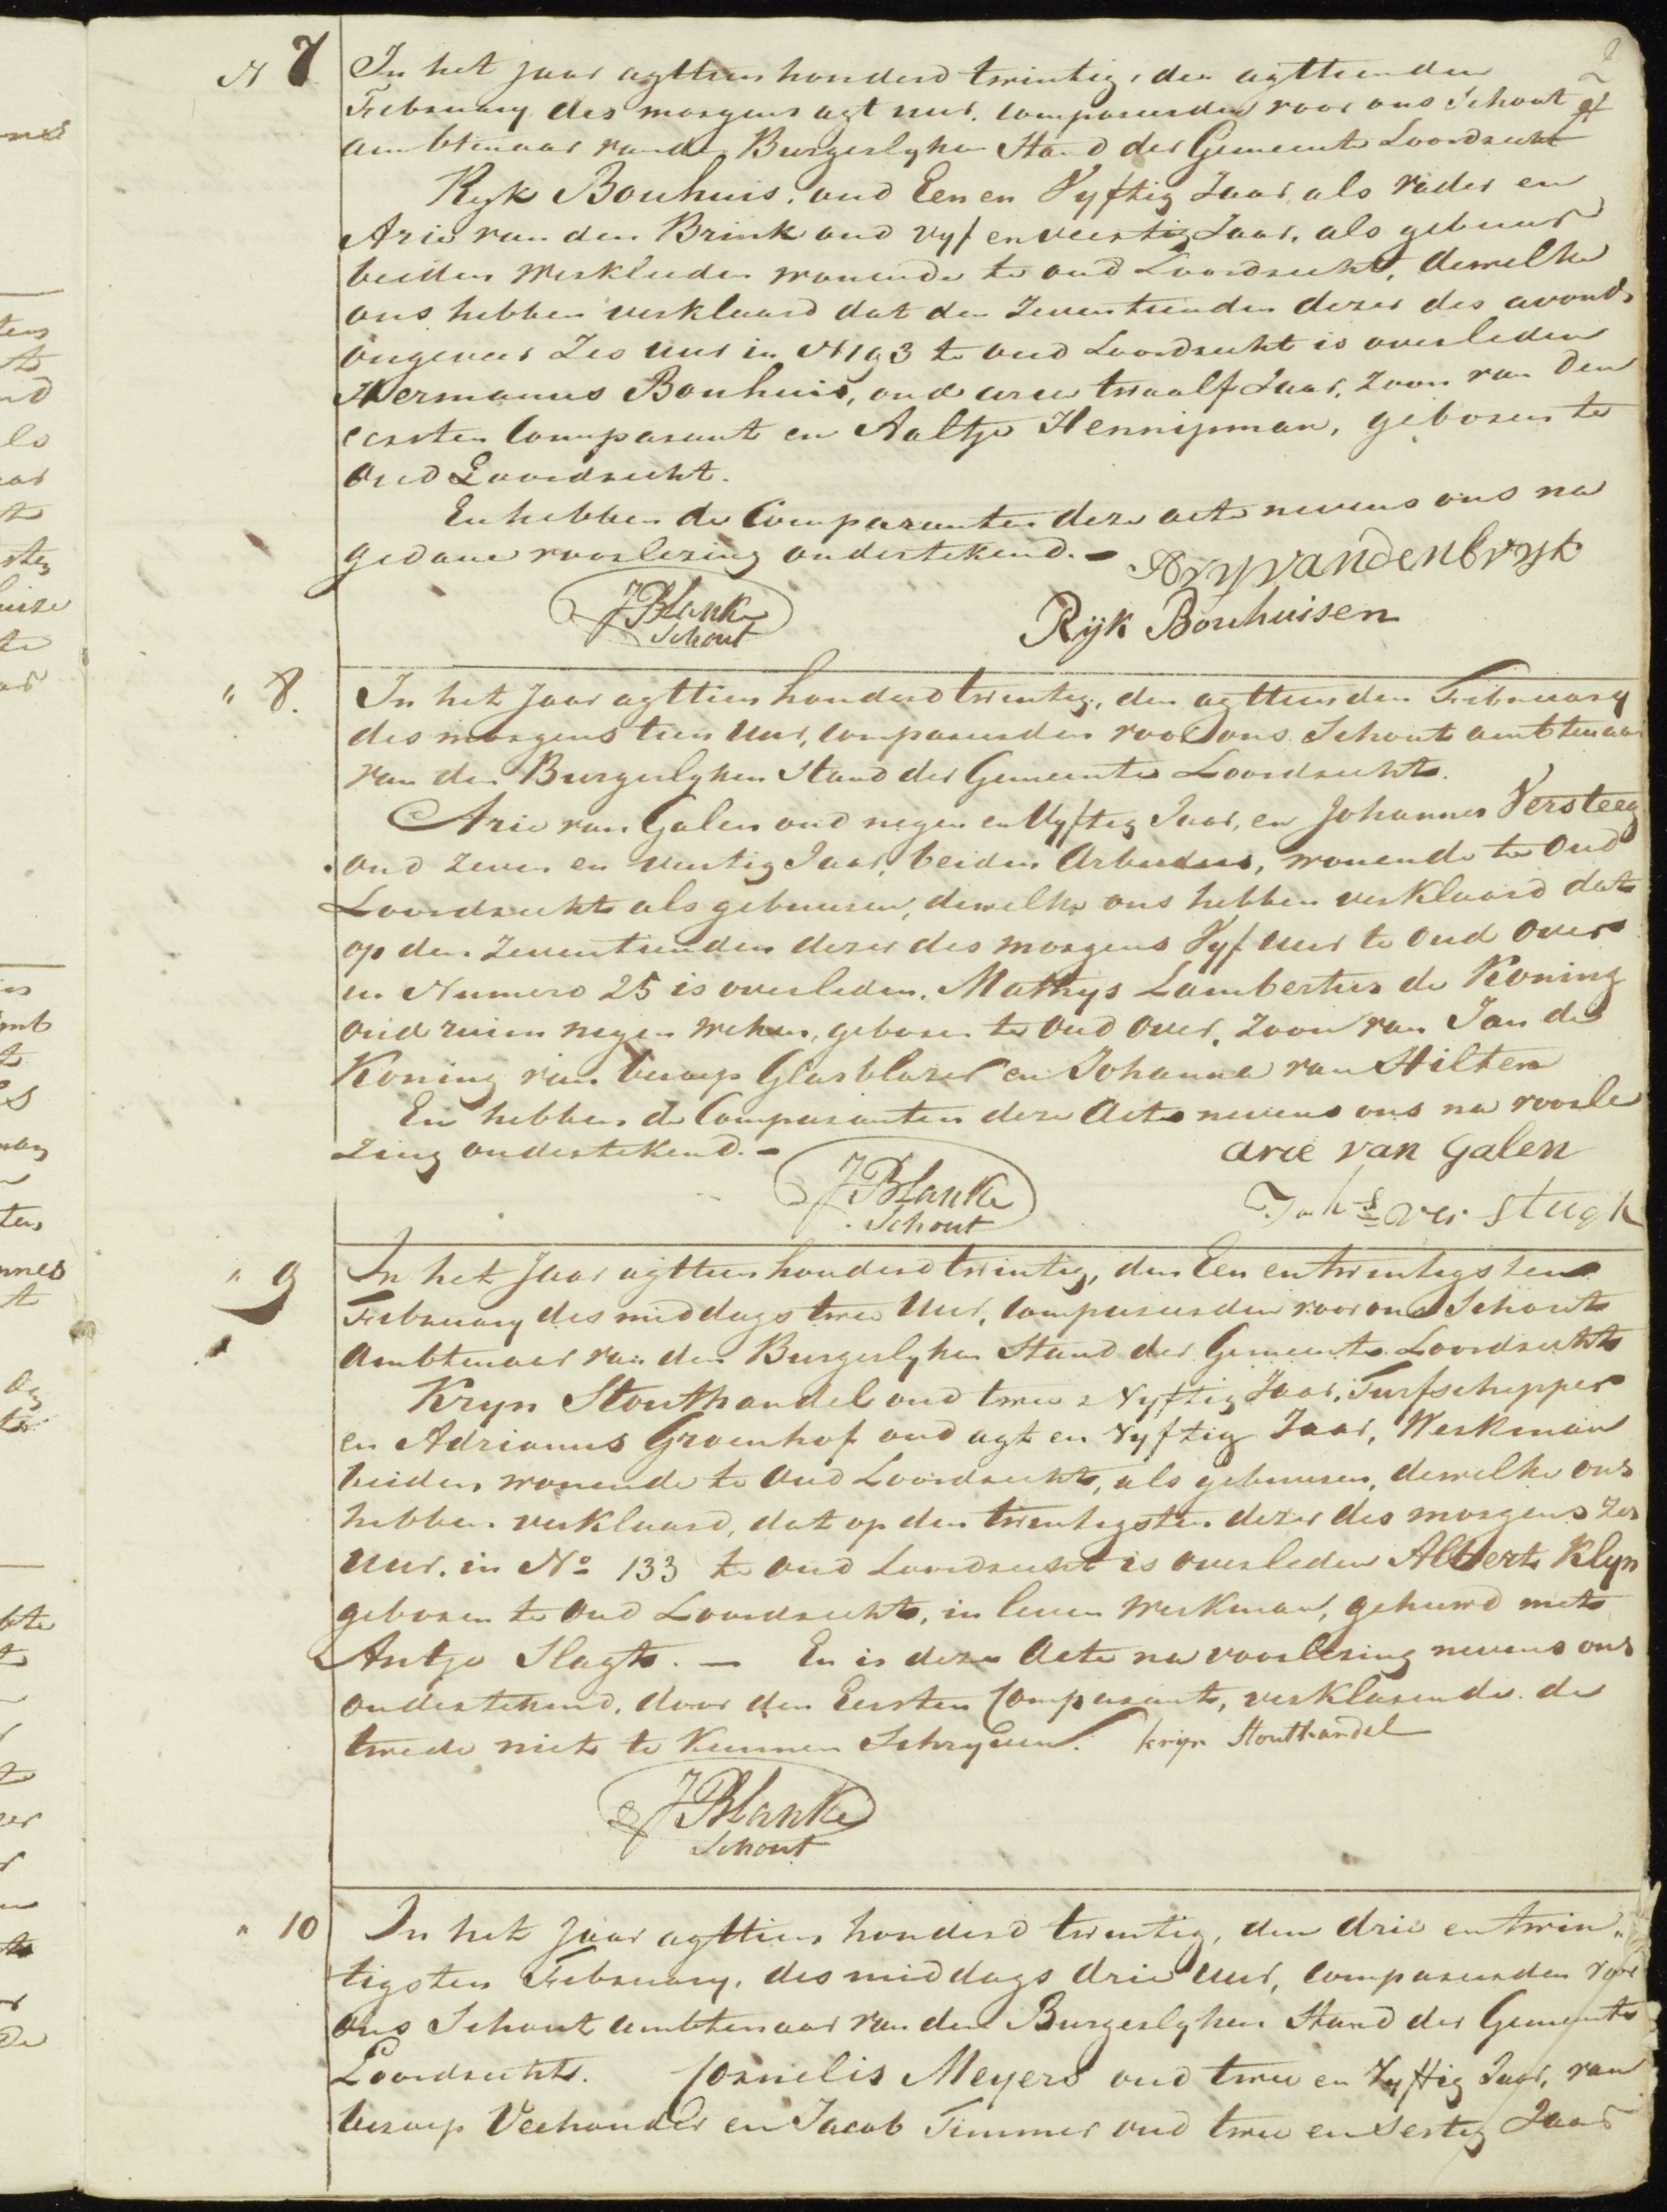 2
N 7
In het jaar agttien honderd twintig, den agttienden
February des morgens agt uur, compareerden voor ons Schout
ambtenaar van den Burgerlyken Stand der Gemeente Loosdrecht
Ryk Bouhuis, oud Een en Vyftig Jaar, als vader en
Arie van den Brink oud vyf en veertig Jaar, als gebuur
beiden Werklieden wonende te oud Loosdrecht, dewelke
ons hebben verklaard dat den Zeventienden dezer des avonds
ongeveer Zes uur in N 193 te oud Loosdrecht is overleden
Hermanus Bouhuis, oud circa twaalf Jaar, zoon van den
eersten Comparant en Aaltje Hennipman, geboren te
Oud Loosdrecht.
En hebben de Comparanten deze acte nevens ons na
gedane voorlezing ondertekend. - Aryvandenbrynk
JBlanke
Schout
Rijk Bouhuisen
" 8.
In het Jaar agttien honderd twintig, den agttienden February
des morgens tien Uur, compareerden voor ons Schout ambtenaar
van den Burgerlyken Stand der Gemeente Loosdrecht.
Arie van Galen oud negen en Vyftig Jaar, en Johannes Versteeg
oud zeven en veertig Jaar, beiden Arbeiders, wonende te Oud
Loosdrecht als gebuuren, dewelke ons hebben verklaard dat
op den Zeventienden dezer des morgens Vyf uur te Oud Over
in Numero 25 is overleden, Mathys Lambertus de Koning
oud ruim negen weken, geboren te Oud Over, Zoon van Jan de
Koning van beroep Glasblazer en Johanna van Hilten
En hebben de Comparanten deze Acte nevens ons na voorle
zing ondertekend. -
arie van Galen
JBlanke
Schout
Joh^s ver stugk
" 9
In het Jaar agttien honderd twintig, den Een en twintigsten
February des middags twee Uur, Compareerden voor ons Schout
Ambtenaar van den Burgerlyken Stand der Gemeente Loosdrecht
Kryn Stouthandel oud twee & Vyftig Jaar, Turfschipper
en Adrianus Groenhof oud agt en Vyftig Jaar, Werkman
beiden wonende te Oud Loosdrecht, als gebuuren, dewelke ons
hebben verklaard, dat op den twintigsten dezer des morgens zes
Uur, in No 133 te oud Loosdrecht is overleden Albert Klyn
geboren te Oud Loosdrecht, in leven Werkman, gehuwd met
Antje Slagt. - En is deze Acte na voorlesing nevens ons
ondertekend, door den Eersten Comparant, verklarende de
twede niet te Kunnen Schryven. krijn Stouthandel
JBlanke
Schout
" 10
In het Jaar agttien honderd twintig, den drie en twin
tigsten February, des middags drie Uur, compareerden voor
ons Schout ambtenaar van den Burgerlyken Stand der Gemeente
Loosdrecht. Cornelis Meyers oud twee en Vyftig Jaar, van
beroep Veehouder en Jacob Timmer oud twee en sestig Jaar